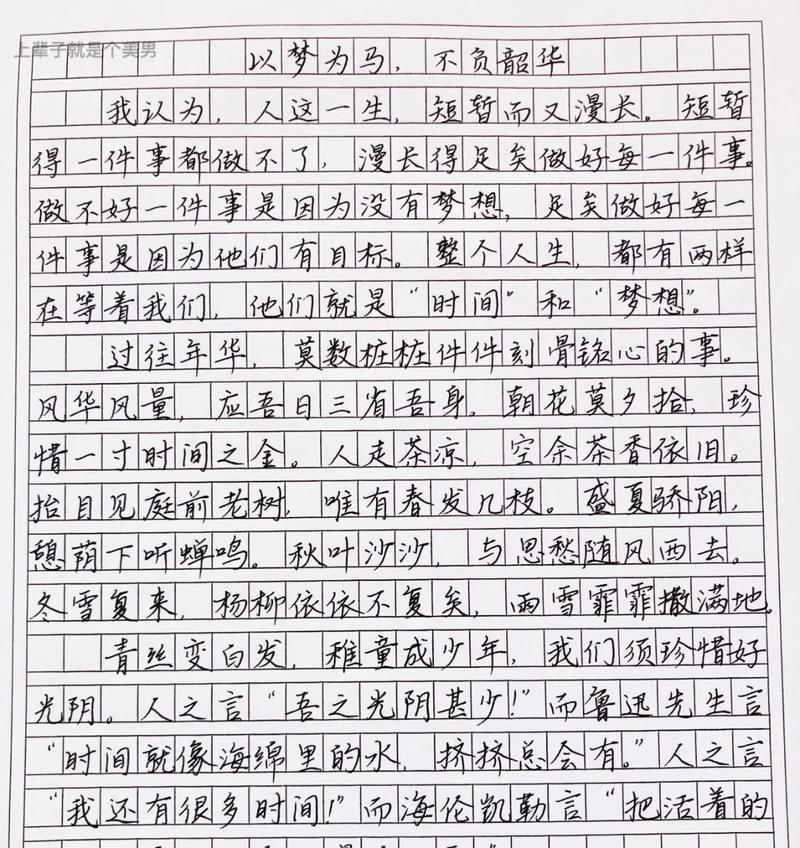 上辈子就是个美男
以梦为马，不负韶华
我认为，人这一生，短暂而又漫长。短暂
得一件事都做不了，漫长得足矣做好每一件事。
做不好一件事是因为没有梦想，足矣做好每一
件事是因为他们有目标。整个人生，都有两样
在等着我们，他们就是“时间”和“梦想”。
过往年华，莫数桩桩件件刻骨铭心的事。
风华风量，应吾日三省吾身。朝花莫夕拾，珍
惜一寸时间之金。人走茶凉，空余茶香依旧。
抬目见庭前老树，唯有春发几枝。盛夏骄阳，
憩荫下听蝉鸣。秋叶沙沙，与思愁随风西去。
冬雪复来，杨柳依依不复矣，雨雪霏霏撒满地。
青丝变白发，稚童成少年，我们须珍惜好
光阴。人之言“吾之光阴甚少！”而鲁迅先生言
“时间就像海绵里的水，挤挤总会有。”人之言
“我还有很多时间！”而海伦凯勒言“把活着的